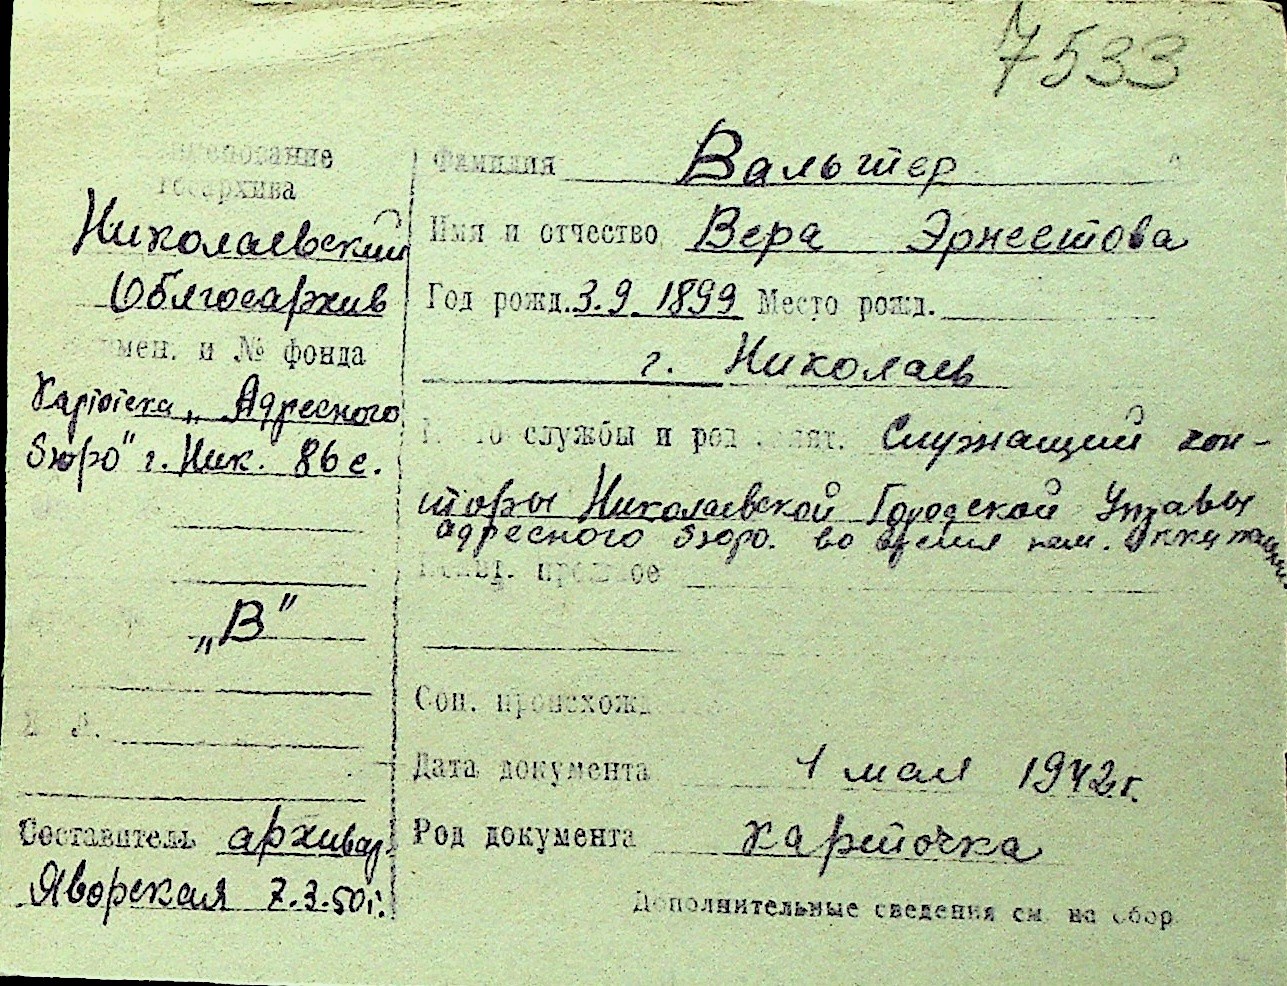 7533
Наименование
госархива
Николаевский
Облгосархив
Наимен. и № фонда
Картотека „Адресного
Бюро" г. Ник. 86 с.
„В"
Составитель архивар.
Яворская 7.3.50г.
Фамилия Вальтер
Имя и отчество Вера Эрнестова
Год рожд. 3.9.1899 Место рожд.
г. Николаев
службы и род занят. Служащий кон-
торы Николаевской Городской Управы
адресного бюро. во время нем. Оккупации
прошлое
Соц. происхожд
Дата документа 1 мая 1942г.
Род документа карточка
Дополнительные сведения см. на обор.